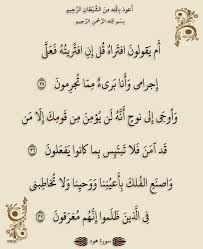 أعوذ بالله من الشيطان الرجيم
بسم الله الرحمن الرحيم
أَمْ يَقُولُونَ افْتَرَاهُ قُلْ إِنِ افْتَرَيْتُهُ فَعَلَيَّ
إِجْرَامِي وَأَنَا بَرِيءٌ مِمَّا تُجْرِمُونَ ﴿٣٥﴾
وَأُوحِيَ إِلَى نُوحٍ أَنَّهُ لَن يُؤْمِنَ مِن قَوْمِكَ إِلَّا مَن
قَدْ آمَنَ فَلَا تَبْتَئِسْ بِمَا كَانُوا يَفْعَلُونَ ﴿٣٦﴾
وَاصْنَعِ الْفُلْكَ بِأَعْيُنِنَا وَوَحْيِنَا وَلَا تُخَاطِبْنِي
فِي الَّذِينَ ظَلَمُوا إِنَّهُم مُّغْرَقُونَ ﴿٣٧﴾
سورة هود